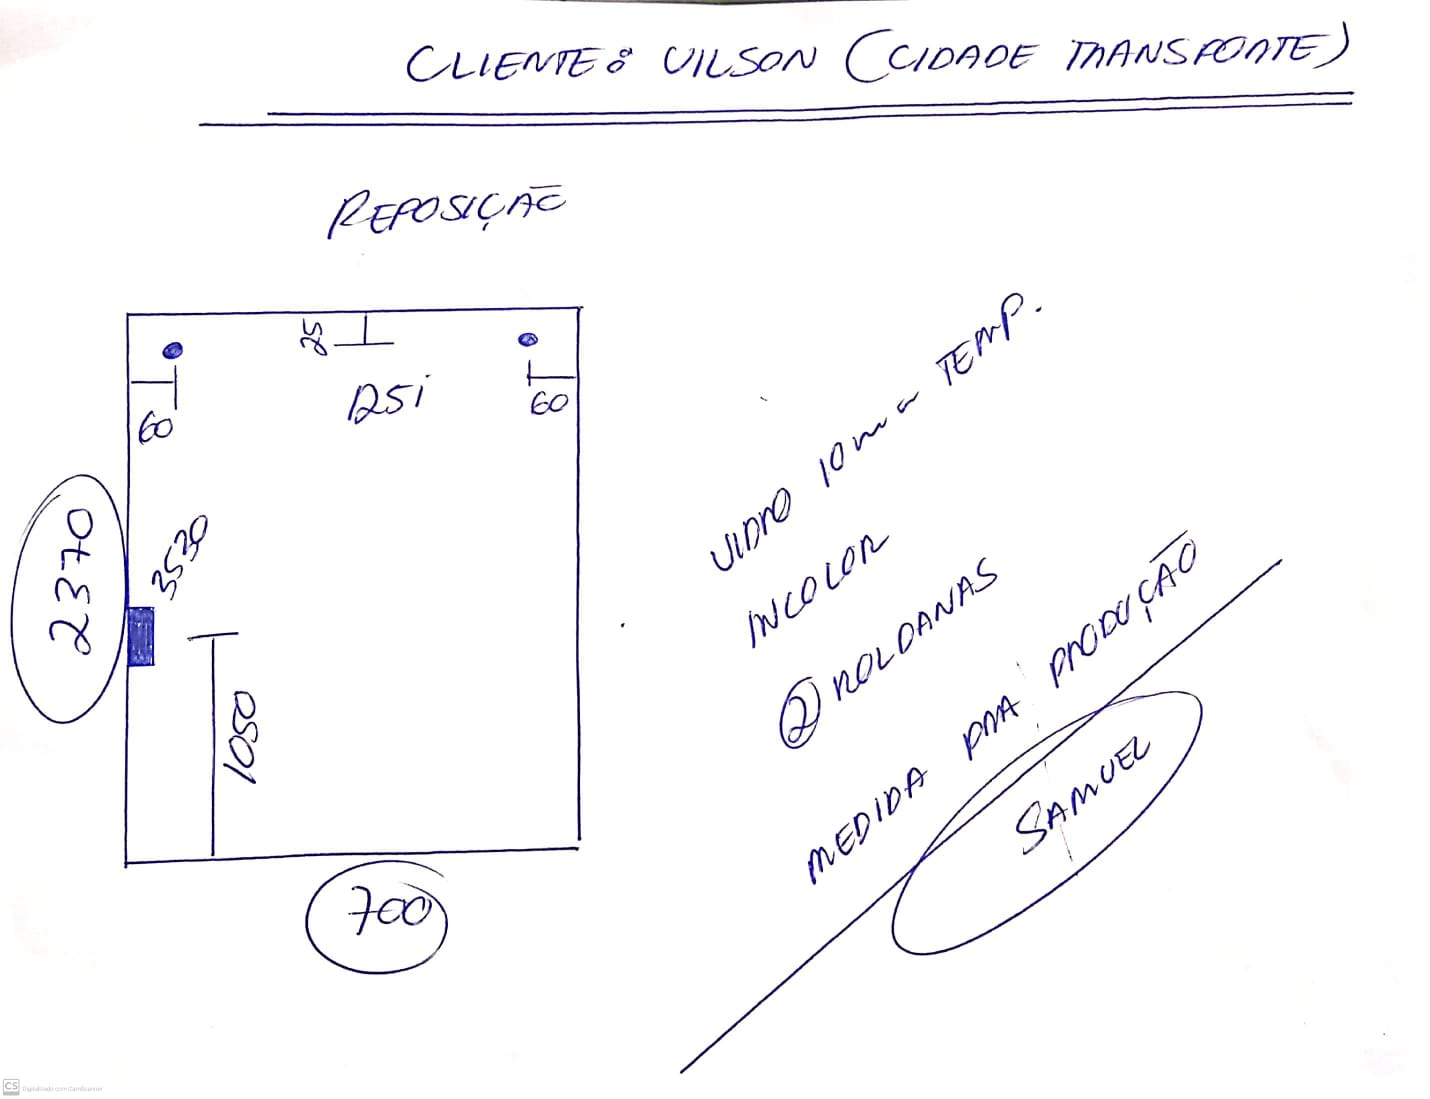 CLIENTE: VILSON (CIDADE TRANSPORTE)
REPOSIÇÃO
25
60
60
2370
3530
1050
700
VIDRO 10mm TEMP.
INCOLOR
2 ROLDANAS
MEDIDA PRA PRODUÇÃO
SAMUEL
CS Digitalizado com CamScanner